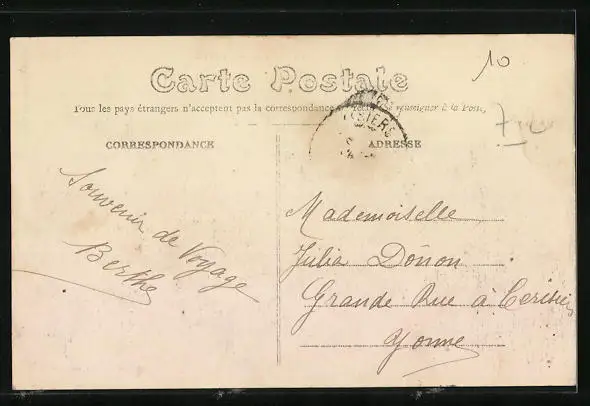 10
Carte Postale
Tous les pays étrangers n'acceptent pas la correspondance renseigner à la Poste,
CORRESPONDANCE
ADRESSE
Souvenir de Voyage
Berthe
Mademoiselle
Julia Donon
Grande Rue à Cerisiers
Yonne